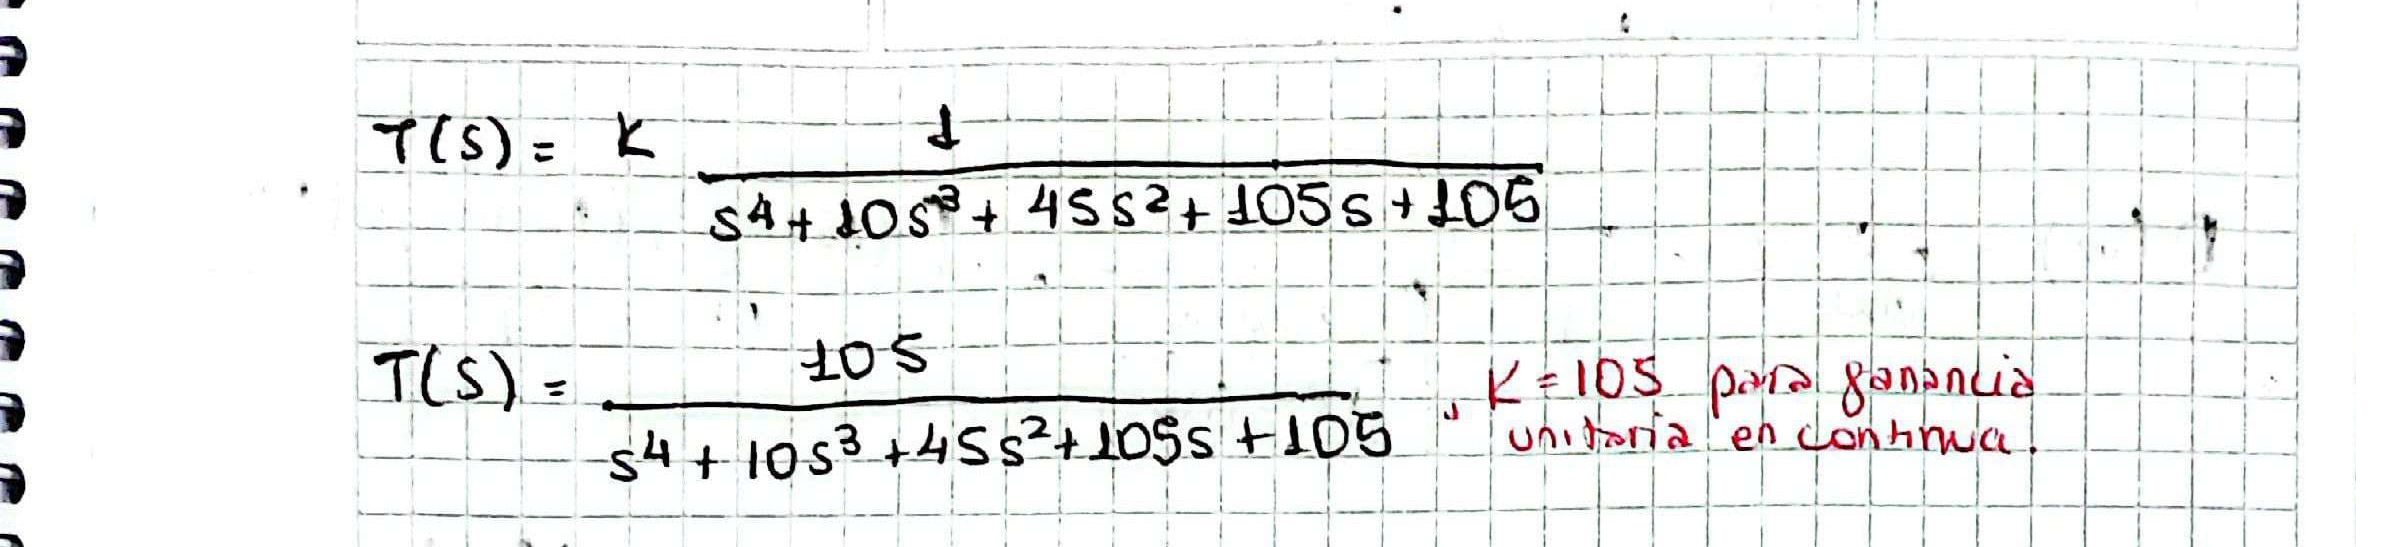 T(S) = K 1
s⁴ + 10s³ + 45s² + 105s + 105
T(S) = 105
s⁴ + 10s³ + 45s² + 105s + 105 , K = 105 para ganancia
unitaria en continua.